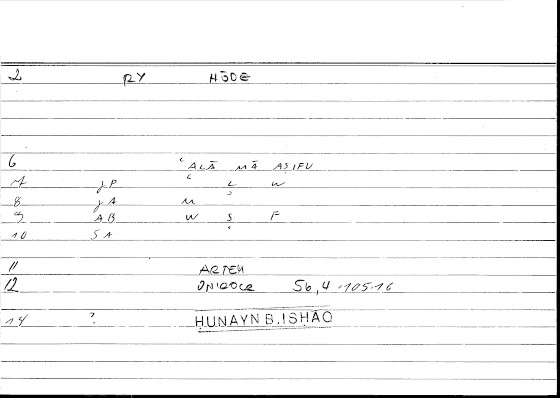 2 RY HŌDE
6 ʿALĀ MĀ AṢIFU
7 JP ʿ L W
8 JA M ʾ
9 AB W Ṣ F
10 SA
11 ARTEM
12 ONIROCR 56,4-105-16
14 ? ḤUNAYN B. ISḤĀQ